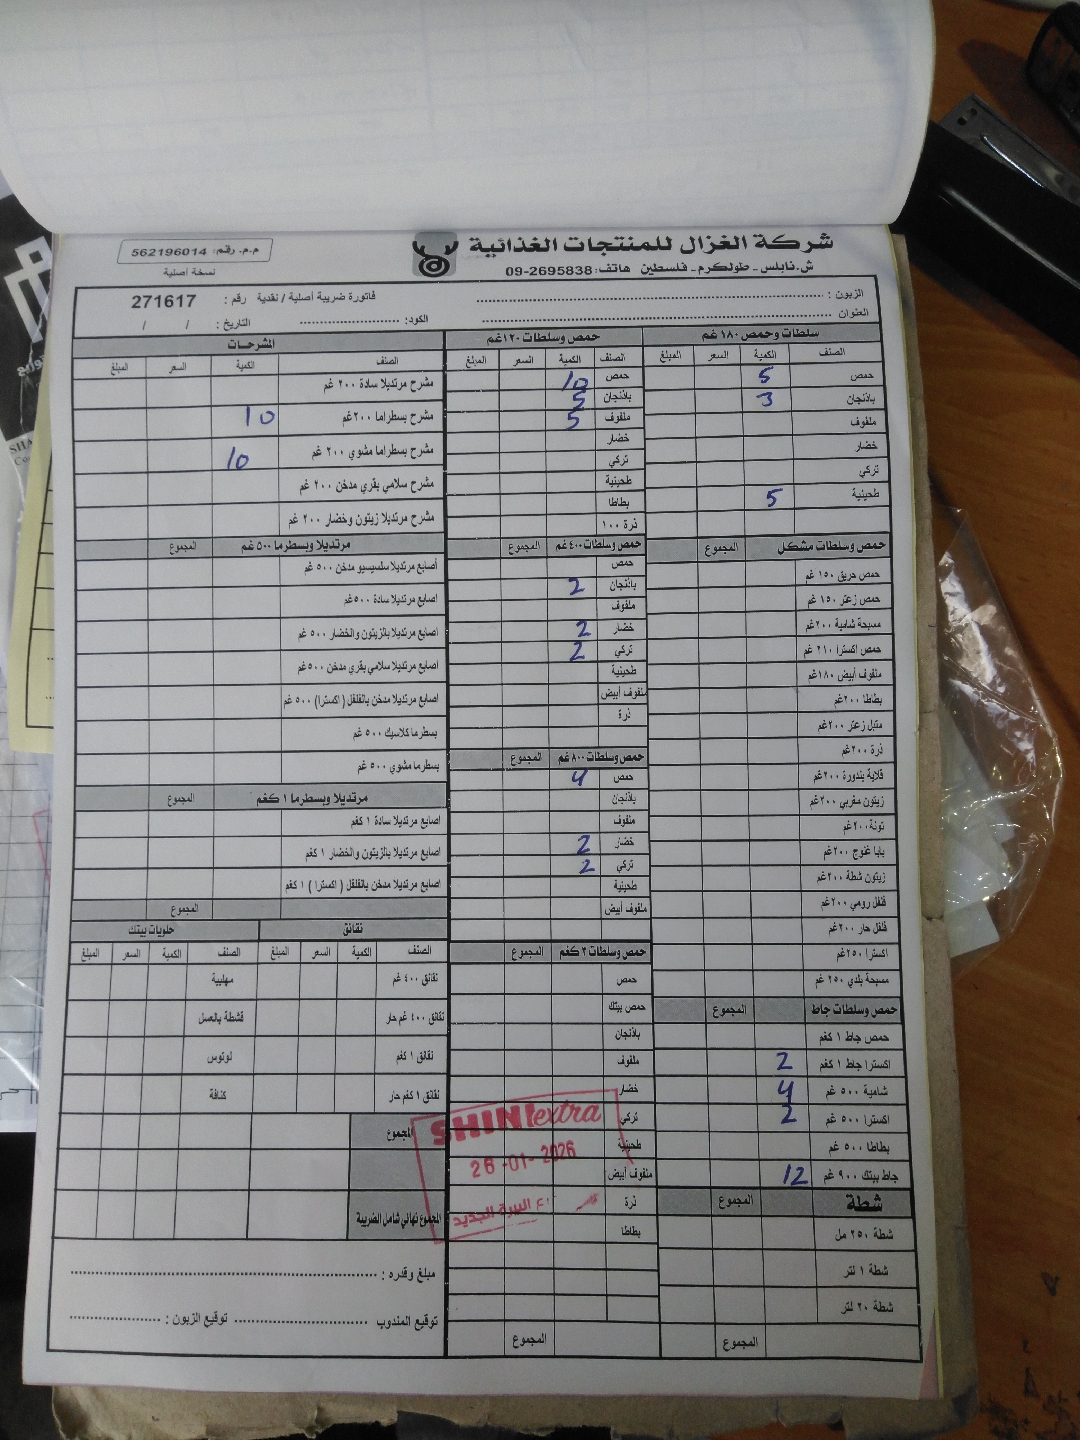 شركة الغزال للمنتجات الغذائية
ش.نابلس - طولكرم - فلسطين هاتف: 09-2695838
م.م. رقم: 562196014
نسخة أصلية
الزبون :
فاتورة ضريبة أصلية / نقدية رقم : 271617
العنوان
الكود:
التاريخ : / /
سلطات وحمص ١٨٠ غم
الصنف الكمية السعر المبلغ
حمص 5
باذنجان 3
ملفوف
خضار
تركي
طحينية 5
حمص وسلطات مشكل المجموع
حمص حريق ١٥٠ غم
حمص زعتر ١٥٠ غم
مسبحة شامية ٢٠٠غم
حمص اكسترا ٢١٠ غم
ملفوف أبيض ١٨٠غم
بطاطا ٢٠٠غم
متبل زعتر ٢٠٠غم
ذرة ٢٠٠غم
قلاية بندورة ٢٠٠غم
زيتون مغربي ٢٠٠غم
تونة ٢٠٠غم
بابا غنوج ٢٠٠غم
زيتون شطة ٢٠٠غم
فلفل رومي ٢٠٠غم
فلفل حار ٢٠٠غم
اكسترا ٢٥٠غم
مسبحة بلدي ٢٥٠ غم
حمص وسلطات جاط المجموع
حمص جاط ١ كغم
اكسترا جاط ١ كغم 2
شامية ٥٠٠ غم 4
اكسترا ٥٠٠ غم 2
بطاطا ٥٠٠ غم
جاط بيتك ٩٠٠ غم 12
شطة المجموع
شطة ٢٥٠ مل
شطة ١ لتر
شطة ٢٠ لتر
المجموع
حمص وسلطات ١٢٠غم
الصنف الكمية السعر المبلغ
حمص 10
باذنجان 5
ملفوف 5
خضار
تركي
طحينية
بطاطا
ذرة ١٠٠
حمص وسلطات ٤٠٠غم المجموع
حمص
باذنجان 2
ملفوف
خضار 2
تركي 2
طحينية
ملفوف أبيض
ذرة
حمص وسلطات ٨٠٠غم المجموع
حمص 4
باذنجان
ملفوف
خضار 2
تركي 2
طحينية
ملفوف أبيض
حمص وسلطات ٣ كغم المجموع
حمص
حمص بيتك
باذنجان
ملفوف
خضار
تركي
طحينية
ملفوف أبيض
ذرة
بطاطا
المجموع
المشرحات
الصنف الكمية السعر المبلغ
مشرح مرتديلا سادة ٢٠٠ غم
مشرح بسطراما ٢٠٠غم 10
مشرح بسطراما مشوي ٢٠٠ غم 10
مشرح سلامي بقري مدخن ٢٠٠ غم
مشرح مرتديلا زيتون وخضار ٢٠٠ غم
مرتديلا وبسطرما ٥٠٠ غم المجموع
أصابع مرتديلا سلسيسيو مدخن ٥٠٠ غم
اصابع مرتديلا سادة ٥٠٠غم
اصابع مرتديلا بالزيتون والخضار ٥٠٠ غم
اصابع مرتديلا سلامي بقري مدخن ٥٠٠غم
اصابع مرتديلا مدخن بالفلفل ( اكسترا) ٥٠٠ غم
بسطرما كلاسيك ٥٠٠ غم
بسطرما مشوي ٥٠٠ غم
مرتديلا وبسطرما ١ كغم المجموع
اصابع مرتديلا سادة ١ كغم
اصابع مرتديلا بالزيتون والخضار ١ كغم
اصابع مرتديلا مدخن بالفلفل ( اكسترا ) ١ كغم
المجموع
نقانق
الصنف الكمية السعر المبلغ
نقانق ٤٠٠ غم
نقانق ٤٠٠ غم حار
نقانق ١ كغم
نقانق ١ كغم حار
حلويات بيتك
الصنف الكمية السعر المبلغ
مهلبية
قشطة بالعسل
لوتوس
كنافة
المجموع
المجموع نهائي شامل الضريبة
SHINI extra
26-01-2026
البيرة الجديد
مبلغ وقدره :
توقيع المندوب
توقيع الزبون :